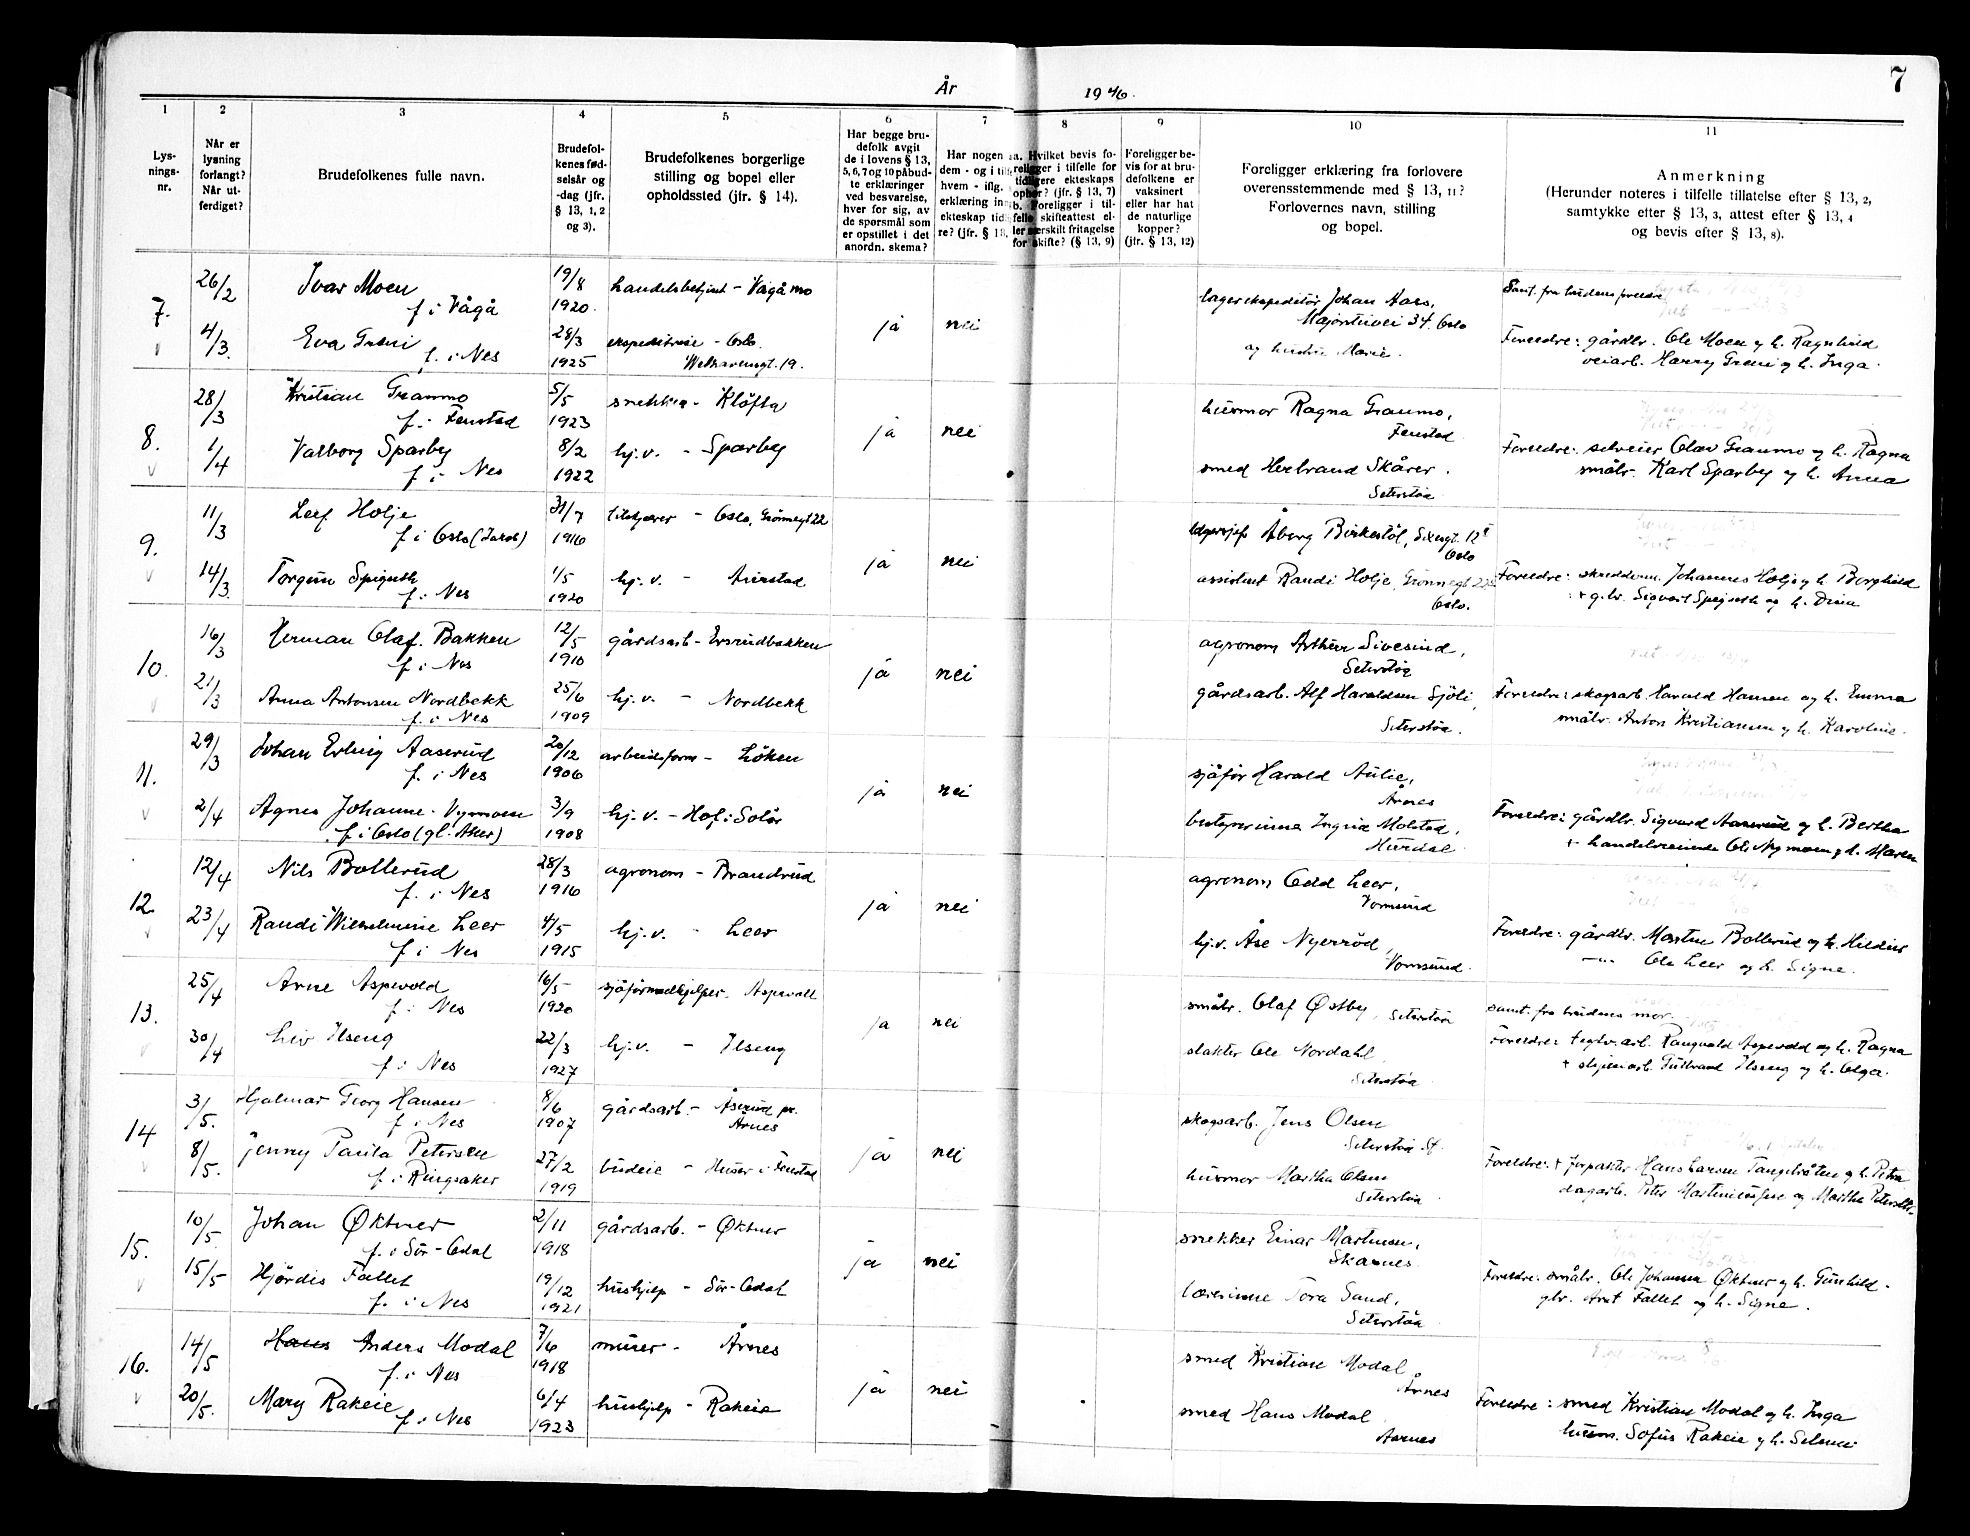 7
År 1946.
1
2
3
4
5
6
7
8
9
10
11
Lys-
nings-
nr.
Når er
lysning
forlangt?
Når ut-
ferdiget?
Brudefolkenes fulle navn.
Brudefol-
kenes fød-
selsår og
-dag (jfr.
§ 13, 1, 2
og 3).
Brudefolkenes borgerlige
stilling og bopel eller
opholdssted (jfr. § 14).
Har begge bru-
defolk avgit
de i lovens § 13,
5, 6, 7 og 10 påbud-
te erklæringer
ved besvarelse,
hver for sig, av
de spørsmål som
er opstillet i det
anordn. skema?
Har nogen
dem - og i
hvem - iflg.
erklæring
ekteskap
re? (jfr. §
a. Hvilket bevis fo-
religger i tilfelle for
tidligere ekteskaps
ophør? (jfr. § 13, 7)
b. Foreligger i til-
felle skifteattest el-
ler særskilt fritagelse
for skifte? (§ 13, 9)
Foreligger be-
vis for at bru-
defolkene er
vaksinert
eller har hat
de naturlige
kopper?
(jfr. § 13, 12)
Foreligger erklæring fra forlovere
overensstemmende med § 13, 11?
Forlovernes navn, stilling
og bopel.
Anmerkning
(Herunder noteres i tilfelle tillatelse efter § 13, 2,
samtykke efter § 13, 3, attest efter § 13, 4
og bevis efter § 13, 8).
7. 26/2 Ivar Moen 19/8 handelsbetjent - Vågåmo
f. i Vågå 1920
ja nei
lagerekspeditør Johan Aars,
Majorstuvei 34. Oslo
og hustru Marie.
Samt. fra brudens foreldre
4/3. Eva Greni 28/3 ekspeditrise - Oslo.
f. i Nes 1925 19.
Foreldre: gårdbr. Ole Moen og h. Ragnhild
veiarb. Harry Greni og h. Inga.
8. 28/3 Kristian Graumo 5/5 snekker - Kløfta
f. i Fenstad 1923
ja nei
husmor Ragna Graumo,
Fenstad
1/4 Valborg Sparby 8/2 hj.v. - Sparby
f. i Nes 1922
smed Herbrand Skårer.
Seterstøa
Foreldre: selveier Olav Graumo og h. Ragna
småbr. Karl Sparby og h. Anna
9. 11/3 Leif Holje 31/7 - Oslo, Grønnegt 22
f. i Oslo (Jacob) 1916
ja nei
lagersjef Åberg Birkestøl,
Oslo
14/3. Torgun Spigseth 1/5 hj.v. - Auerstad
f. i Nes 1920
assistent Randi Holje, Grønnegt 22
Oslo.
Foreldre: skredderm. Johannes Holje og h. Borghild
+ g.br. Sigvart Spigseth og h. Dina
10. 16/3 Herman Olaf Bakken 12/5 gårdsarb - Ersrudbakken
f. i Nes 1910
ja nei
agronom Arthur Sivesind,
Seterstøa
21/3 Anna Antonsen Nordbekk 25/6 hj.v. - Nordbekk
f. i Nes 1909
gårdsarb. Alf Haraldsen Sjøli,
Seterstøa.
Foreldre: skogsarb. Harald Hansen og h. Emma
småbr. Anton Kristiansen og h. Karoline.
11. 29/3 Johan Erling Aaserud 20/12 arbeidsform - Løken
f. i Nes 1906
ja nei
sjåfør Harald Aulie,
Årnes
2/4 Agnes Johanne Nymoen 3/9 hj.v. - Hof i Solør
f. i Oslo (gl. Aker) 1908
bestyrerinne Ingrid Molstad,
Hurdal
Foreldre: gårdbr. Sigvard Aaserud og h. Bertha
+ handelsreisende Ole Nymoen og h. Maren
12. 12/4 Nils Bollerud 28/3 agronom - Brandrud
f. i Nes 1916
ja nei
agronom Odd Leer,
Vormsund
23/4 Randi Wilhelmine Leer 4/5 hj.v. - Leer
f. i Nes 1915
hj.v. Åse Nyerrød,
Vormsund.
Foreldre: gårdbr. Martin Bollerud og h. Hildur
-"- Ole Leer og h. Signe.
13. 25/4 Arne Aspevold 16/5 sjåførmedhjelper - Aspevoll
f. i Nes 1920
ja nei
småbr. Olaf Østby, Seterstøa
samt. fra brudens mor.
30/4 Liv Ilseng 22/3 hj.v. - Ilseng
f. i Nes 1927
slakter Ole Nordahl
Seterstøa
Foreldre: teglv.arb. Rangvald Aspevold og h. Ragna
+ skjeniarb. Gulbrand Ilseng og h. Olga.
14 3/5. Hjalmar Georg Hansen 8/6 gårdsarb. - Åserud pr.
f. i Nes 1907 Årnes
ja nei
skogsarb. Jens Olsen
Seterstøa st.
8/5. Jenny Paula Petersen 27/2 budeie - Huser i Fenstad
f. i Ringsaker 1919
husmor Martha Olsen
Seterstøa
Foreldre: + forpakter Hans Larsen Tangebråten og h. Petra
dagarb. Peter Martiniussen og Martha
15. 10/5. Johan Øktner 2/11 gårdsarb. - Øktner
f. i Sør-Odal 1918
ja nei
snekker Einar Martinsen,
Skarnes
15/5 Hjørdis Fallet 19/12 hushjelp - Sør-Odal
f. i Nes 1921
lærerinne Tora Sand,
Seterstøa
Foreldre: småbr. Ole Johansen Øktner og h. Gunhild.
gbr. Arnt Fallet og h. Signe.
16. 14/5 Hans Anders Modal 7/6 murer - Årnes
f. i Nes 1918
ja nei
smed Kristian Modal
Årnes
20/5. Mary Rakeie 6/4 hushjelp - Rakeie
f. i Nes 1923
smed Hans Modal
Aarnes
Foreldre: smed Kristian Modal og h. Inga
husm. Sofus Rakeie og h.